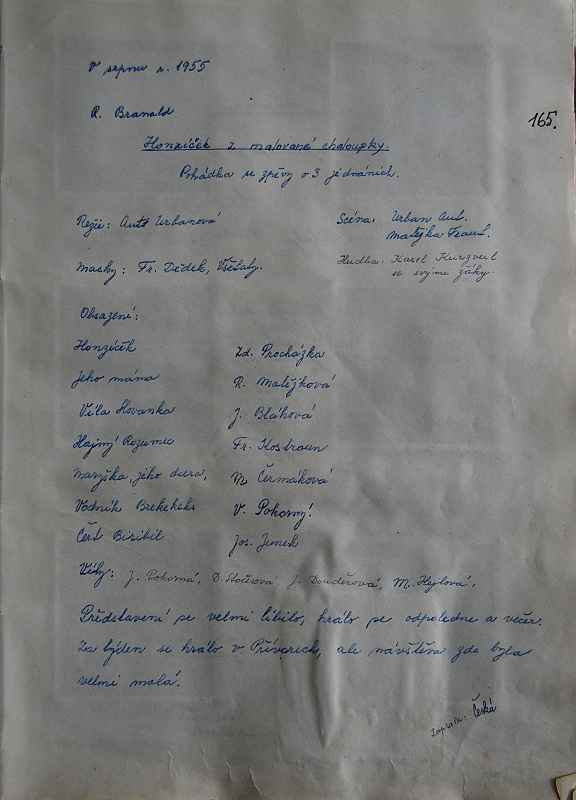 V srpnu r. 1955
R. Branald
165.
Honzíček z malované chaloupky.
Pohádka se zpěvy o 3 jednáních.
Režie: Urbanová
Scéna: Urban Ant.
Matějka Frant.
Masky: Fr. Dědek, Všetaty.
Hudba: Karel Kurzveil
se svými žáky.
Obsazení:
Honzíček Zd. Procházka
Jeho máma R. Matějková
Víla Slovanka J. Bláhová
Hajný Rozumec Fr. Kostroun
Maryška, jeho dcera, M. Čermáková
Vodník Brekekeks V. Pokorný
Čert Biribil Jos. Jenek
Víly: J. Pokorná, D. J. Douděrová, M. Hejlová.
Představení se velmi líbilo, hrálo se odpoledne a večer.
Za týden se hrálo v Přívorech, ale návštěva zde byla
velmi malá.
zapsala: Česká